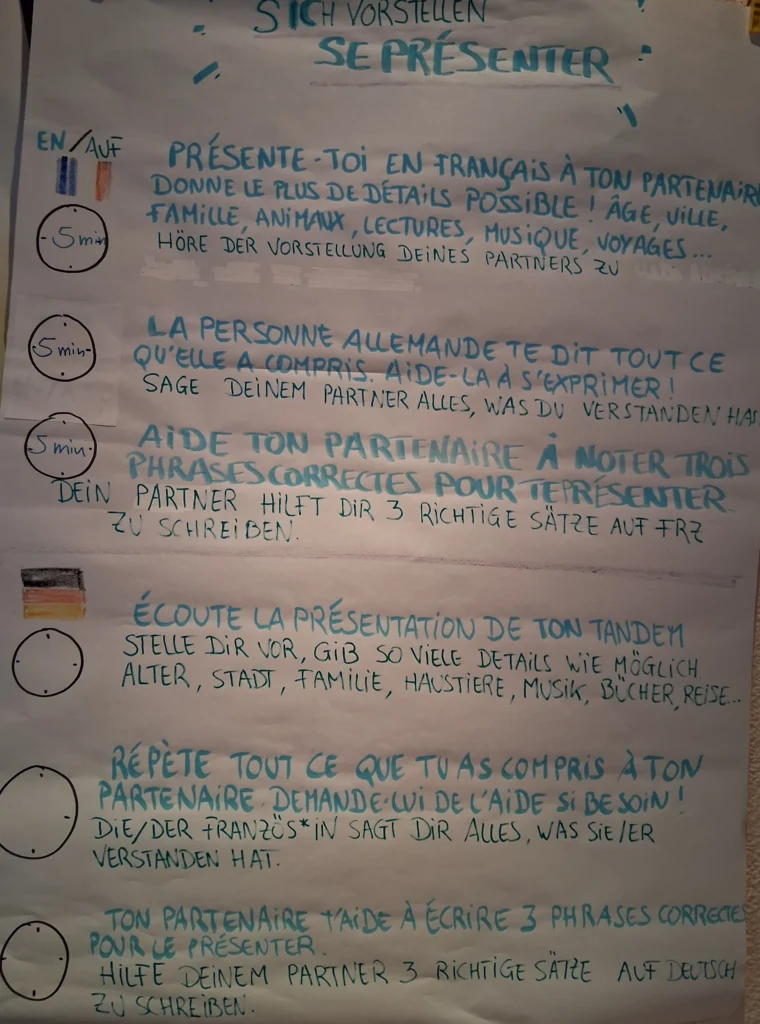 SICH VORSTELLEN
SE PRÉSENTER
EN/AUF
PRÉSENTE-TOI EN FRANÇAIS À TON PARTENAIRE
DONNE LE PLUS DE DÉTAILS POSSIBLE ! ÂGE, VILLE,
FAMILLE, ANIMAUX, LECTURES, MUSIQUE, VOYAGES...
5 min
HÖRE DER VORSTELLUNG DEINES PARTNERS ZU
LA PERSONNE ALLEMANDE TE DIT TOUT CE
5 min
QU'ELLE A COMPRIS. AIDE-LA À S'EXPRIMER !
SAGE DEINEM PARTNER ALLES, WAS DU VERSTANDEN HAS
5 min
AIDE TON PARTENAIRE À NOTER TROIS
PHRASES CORRECTES POUR TE PRÉSENTER.
DEIN PARTNER HILFT DIR 3 RICHTIGE SÄTZE AUF FRZ
ZU SCHREIBEN.
ÉCOUTE LA PRÉSENTATION DE TON TANDEM
STELLE DIR VOR, GIB SO VIELE DETAILS WIE MÖGLICH
ALTER, STADT, FAMILIE, HAUSTIERE, MUSIK, BÜCHER, REISE...
RÉPÈTE TOUT CE QUE TU AS COMPRIS À TON
PARTENAIRE. DEMANDE-LUI DE L'AIDE SI BESOIN !
DIE/DER FRANZÖS*IN SAGT DIR ALLES, WAS SIE/ER
VERSTANDEN HAT.
TON PARTENAIRE T'AIDE À ÉCRIRE 3 PHRASES CORRECTES
POUR LE PRÉSENTER.
HILFE DEINEM PARTNER 3 RICHTIGE SÄTZE AUF DEUTSCH
ZU SCHREIBEN.